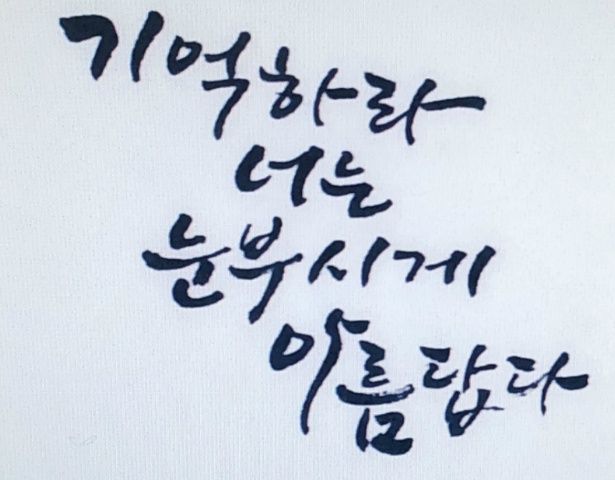 기억하라
너는
눈부시게
아름답다